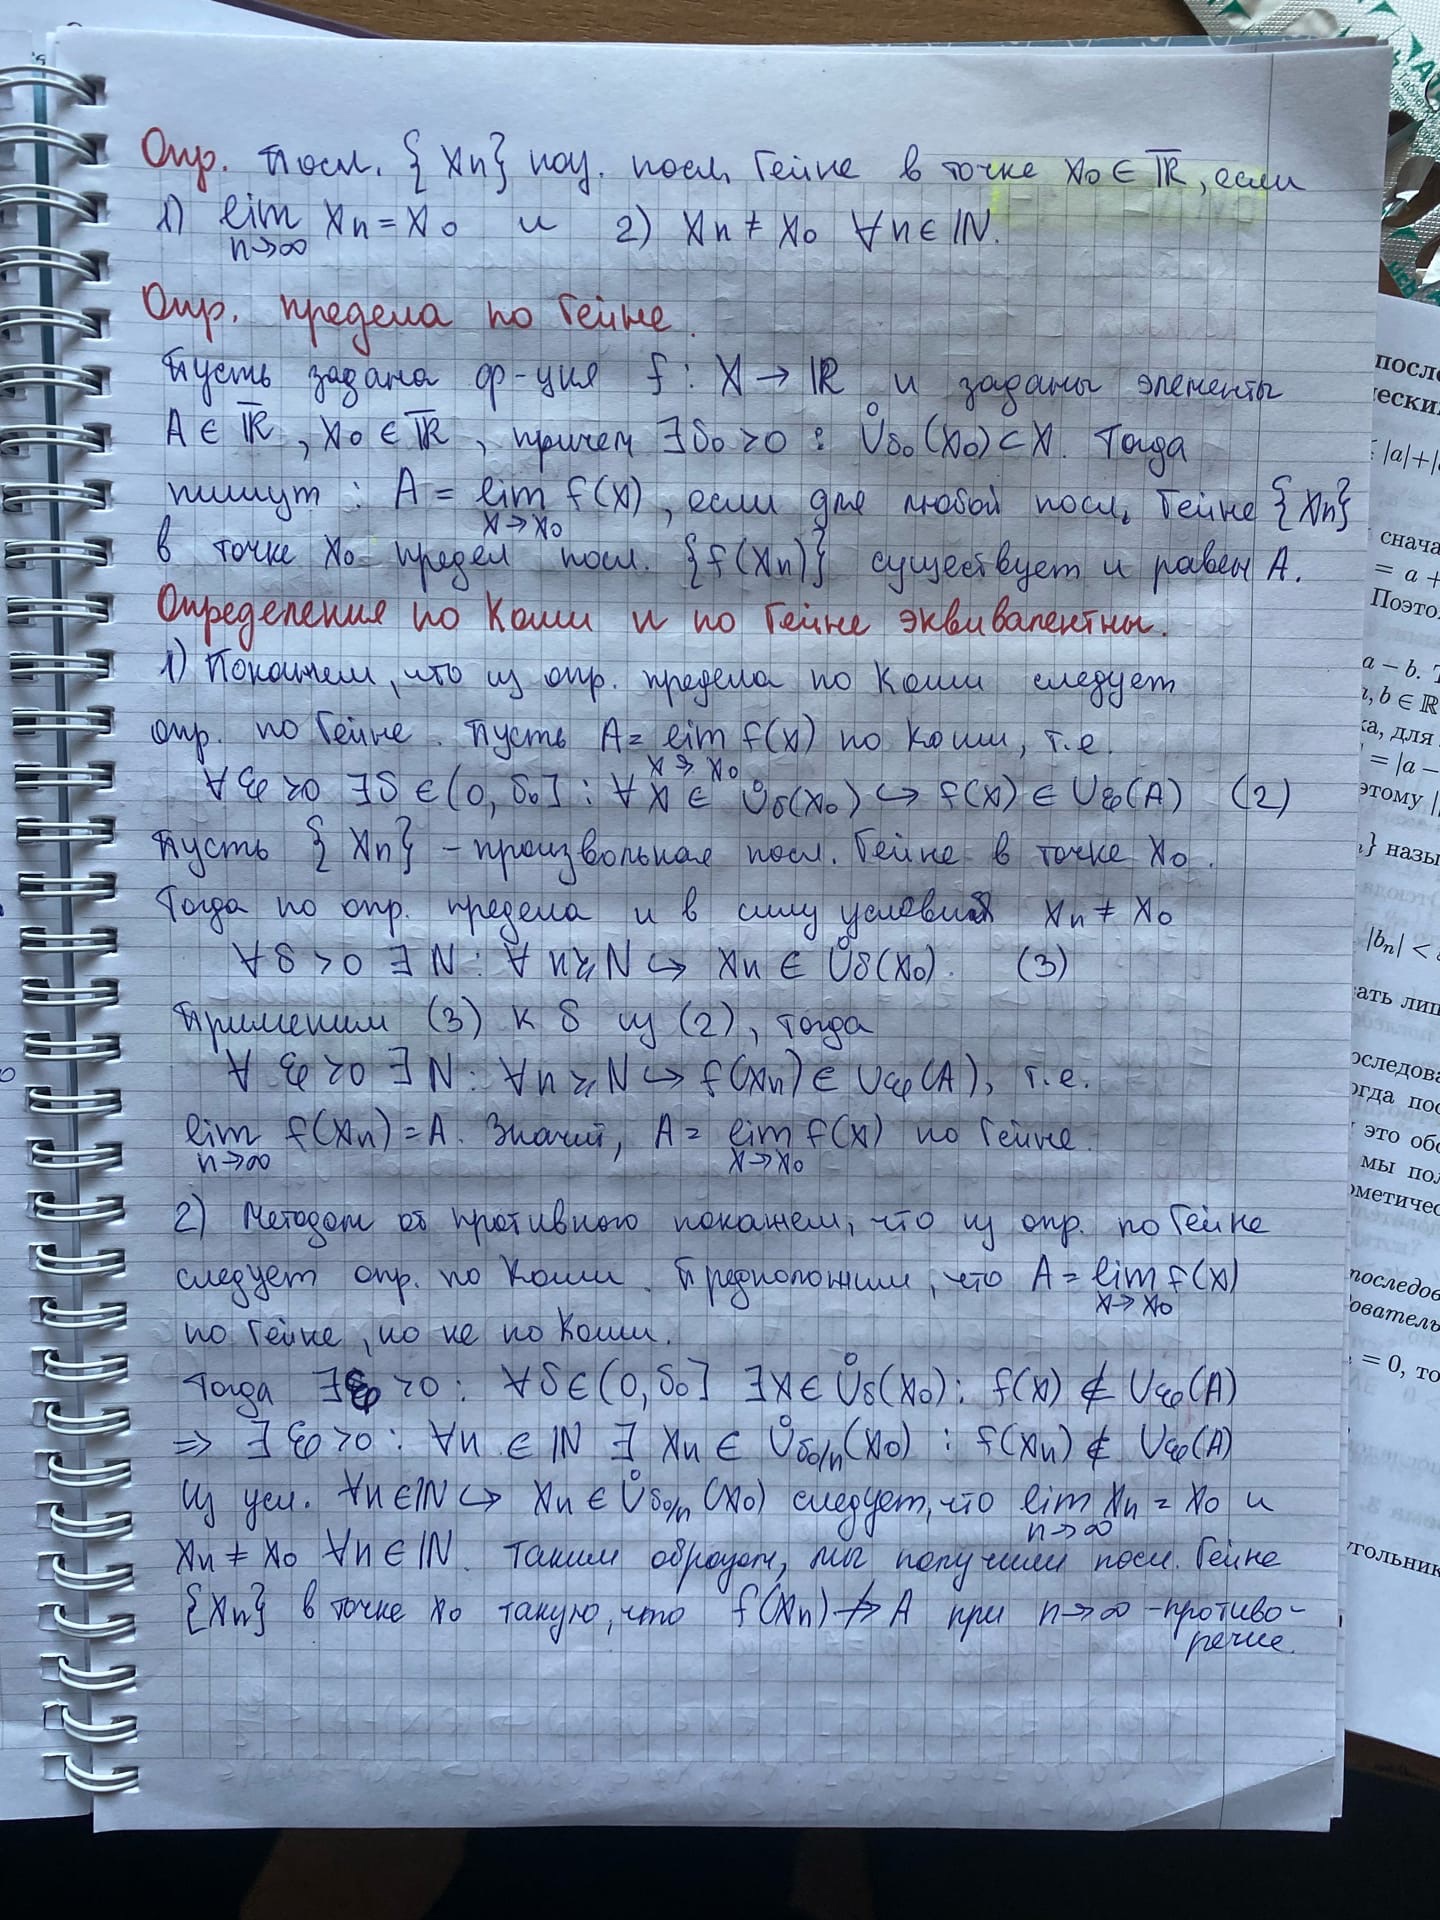 Опр. Посл. {xn} наз. посл. Гейне в точке x₀ ∈ ℝ̅, если
1) lim xn = x₀ и 2) xn ≠ x₀ ∀n ∈ ℕ.
n→∞
Опр. предела по Гейне.
Пусть задана ф-ция f : X → ℝ и заданы элементы
A ∈ ℝ̅, x₀ ∈ ℝ̅, причем ∃δ₀>0 : Ůδ₀(x₀) ⊂ X. Тогда
пишут : A = lim f(x), если для любой посл. Гейне {xn}
x→x₀
в точке x₀ предел посл. {f(xn)} существует и равен A.
Определения по Коши и по Гейне эквивалентны.
1) Покажем, что из опр. предела по Коши следует
опр. по Гейне. Пусть A = lim f(x) по Коши, т.е.
x→x₀
∀ε>0 ∃δ ∈ (0, δ₀] : ∀x ∈ Ůδ(x₀) ↪ f(x) ∈ Uε(A) (2)
Пусть {xn} - произвольная посл. Гейне в точке x₀.
Тогда по опр. предела и в силу условия xn ≠ x₀
∀δ > 0 ∃N : ∀n ⩾ N ↪ xn ∈ Ůδ(x₀). (3)
Применим (3) к δ из (2), тогда
∀ε>0 ∃N : ∀n ⩾ N ↪ f(xn) ∈ Uε(A), т.е.
lim f(xn) = A. Значит, A = lim f(x) по Гейне.
n→∞ x→x₀
2) Методом от противного покажем, что из опр. по Гейне
следует опр. по Коши. Предположим, что A = lim f(x)
x→x₀
по Гейне, но не по Коши.
Тогда ∃ε>0 : ∀δ ∈ (0, δ₀] ∃x ∈ Ůδ(x₀) : f(x) ∉ Uε(A)
⇒ ∃ε>0 : ∀n ∈ ℕ ∃ xn ∈ Ůδ₀/n(x₀) : f(xn) ∉ Uε(A)
Из усл. ∀n ∈ ℕ ↪ xn ∈ Ůδ₀/n(x₀) следует, что lim xn = x₀ и
n→∞
xn ≠ x₀ ∀n ∈ ℕ. Таким образом, мы получим посл. Гейне
{xn} в точке x₀ такую, что f(xn) ↛ A при n→∞ - противо-
речие.
после
ческий
|a|+|
снача
= a +
Поэто
a − b. Т
, b ∈ ℝ
ка, для
= |a −
этому |
} назы
|bn| <
ать лиш
оследова
огда пос
это обо
мы пол
ометичес
последов
ователь
= 0, то
угольник